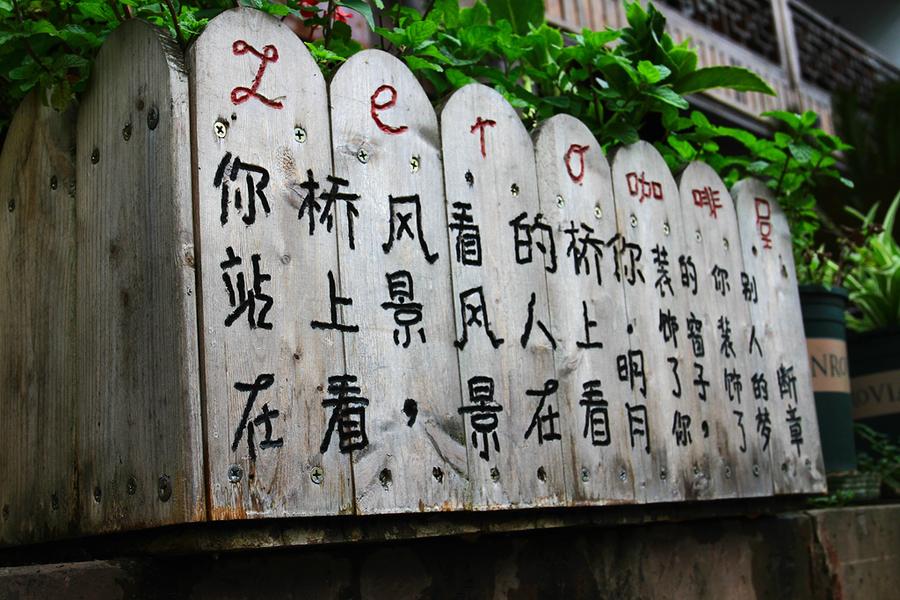 Zero咖啡
你站在
桥上看
风景，
看风景
的人在
桥上看
你·明月
装饰了你
的窗子，
你装饰了
·别人的梦
·断章